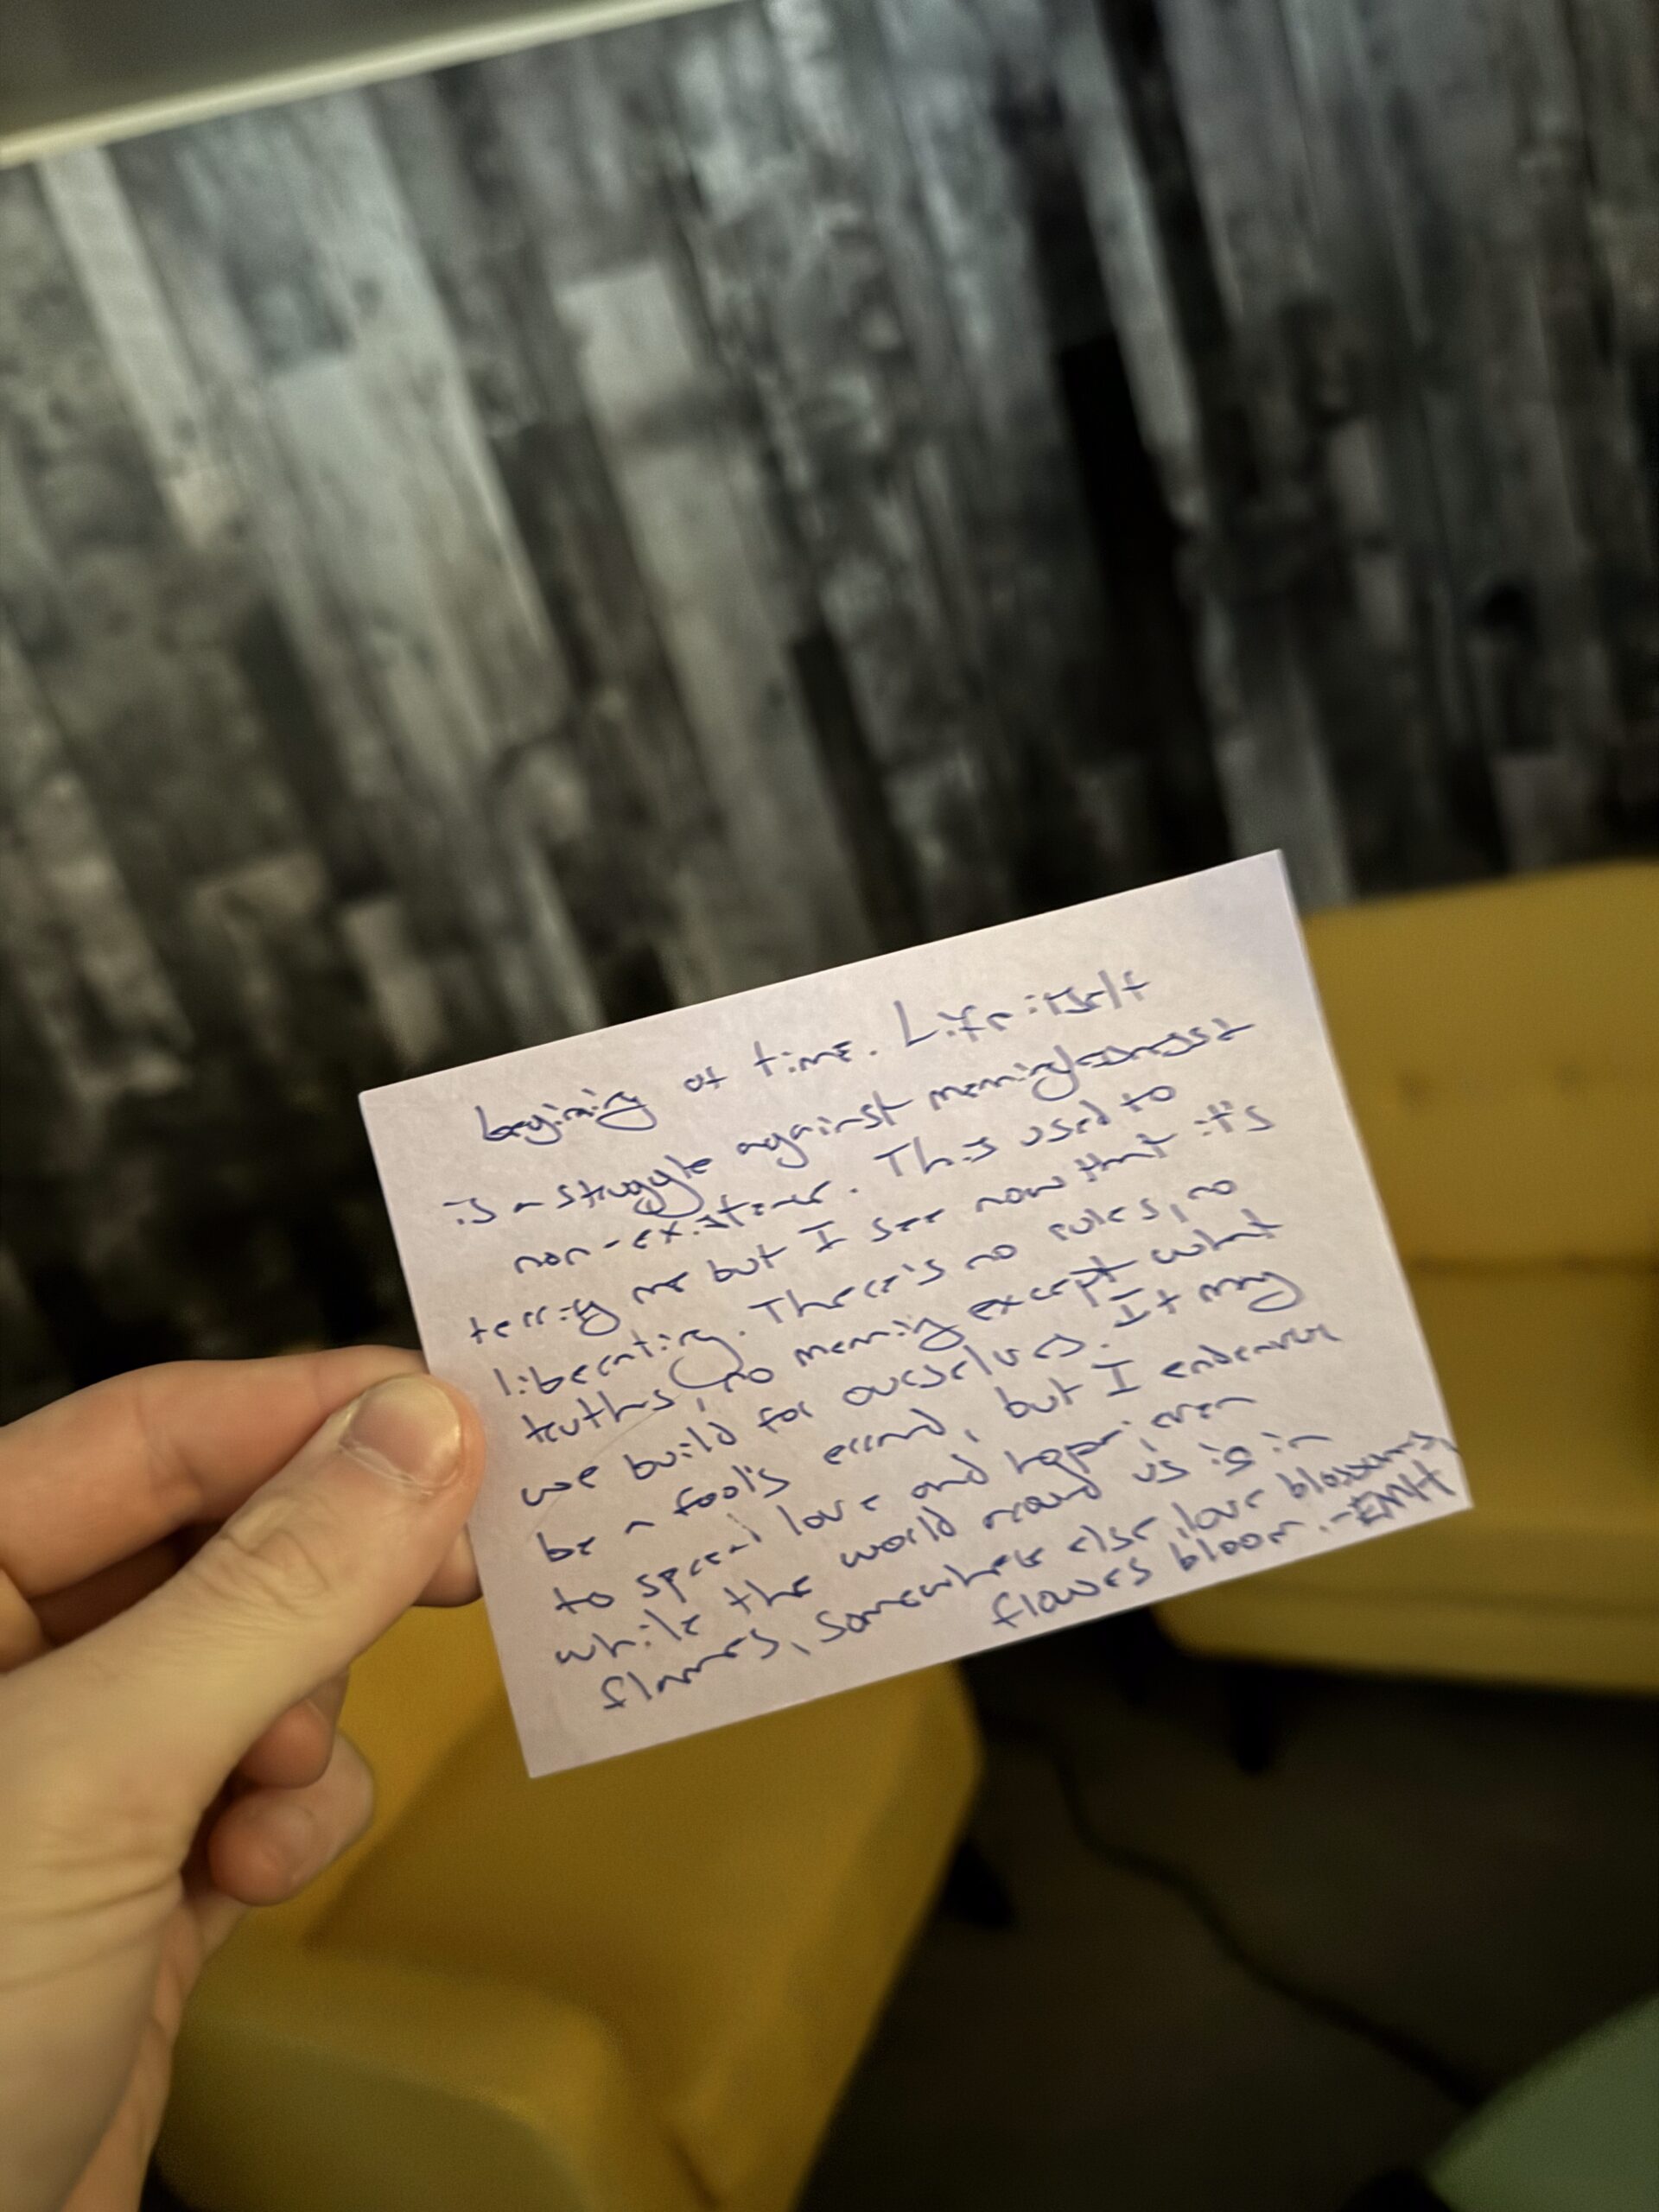 begining of time. Life itself
is a struggle against meaninglessness &
non-existence. This used to
terrify me but I see now that it's
liberating. There's no rules, no
truths, no meaning except what
we build for ourselves. It may
be a fool's errand, but I endeavor
to spread love and hope; even
while the world around us is in
flames, somewhere else, love blossoms,
flowers bloom. -EMH